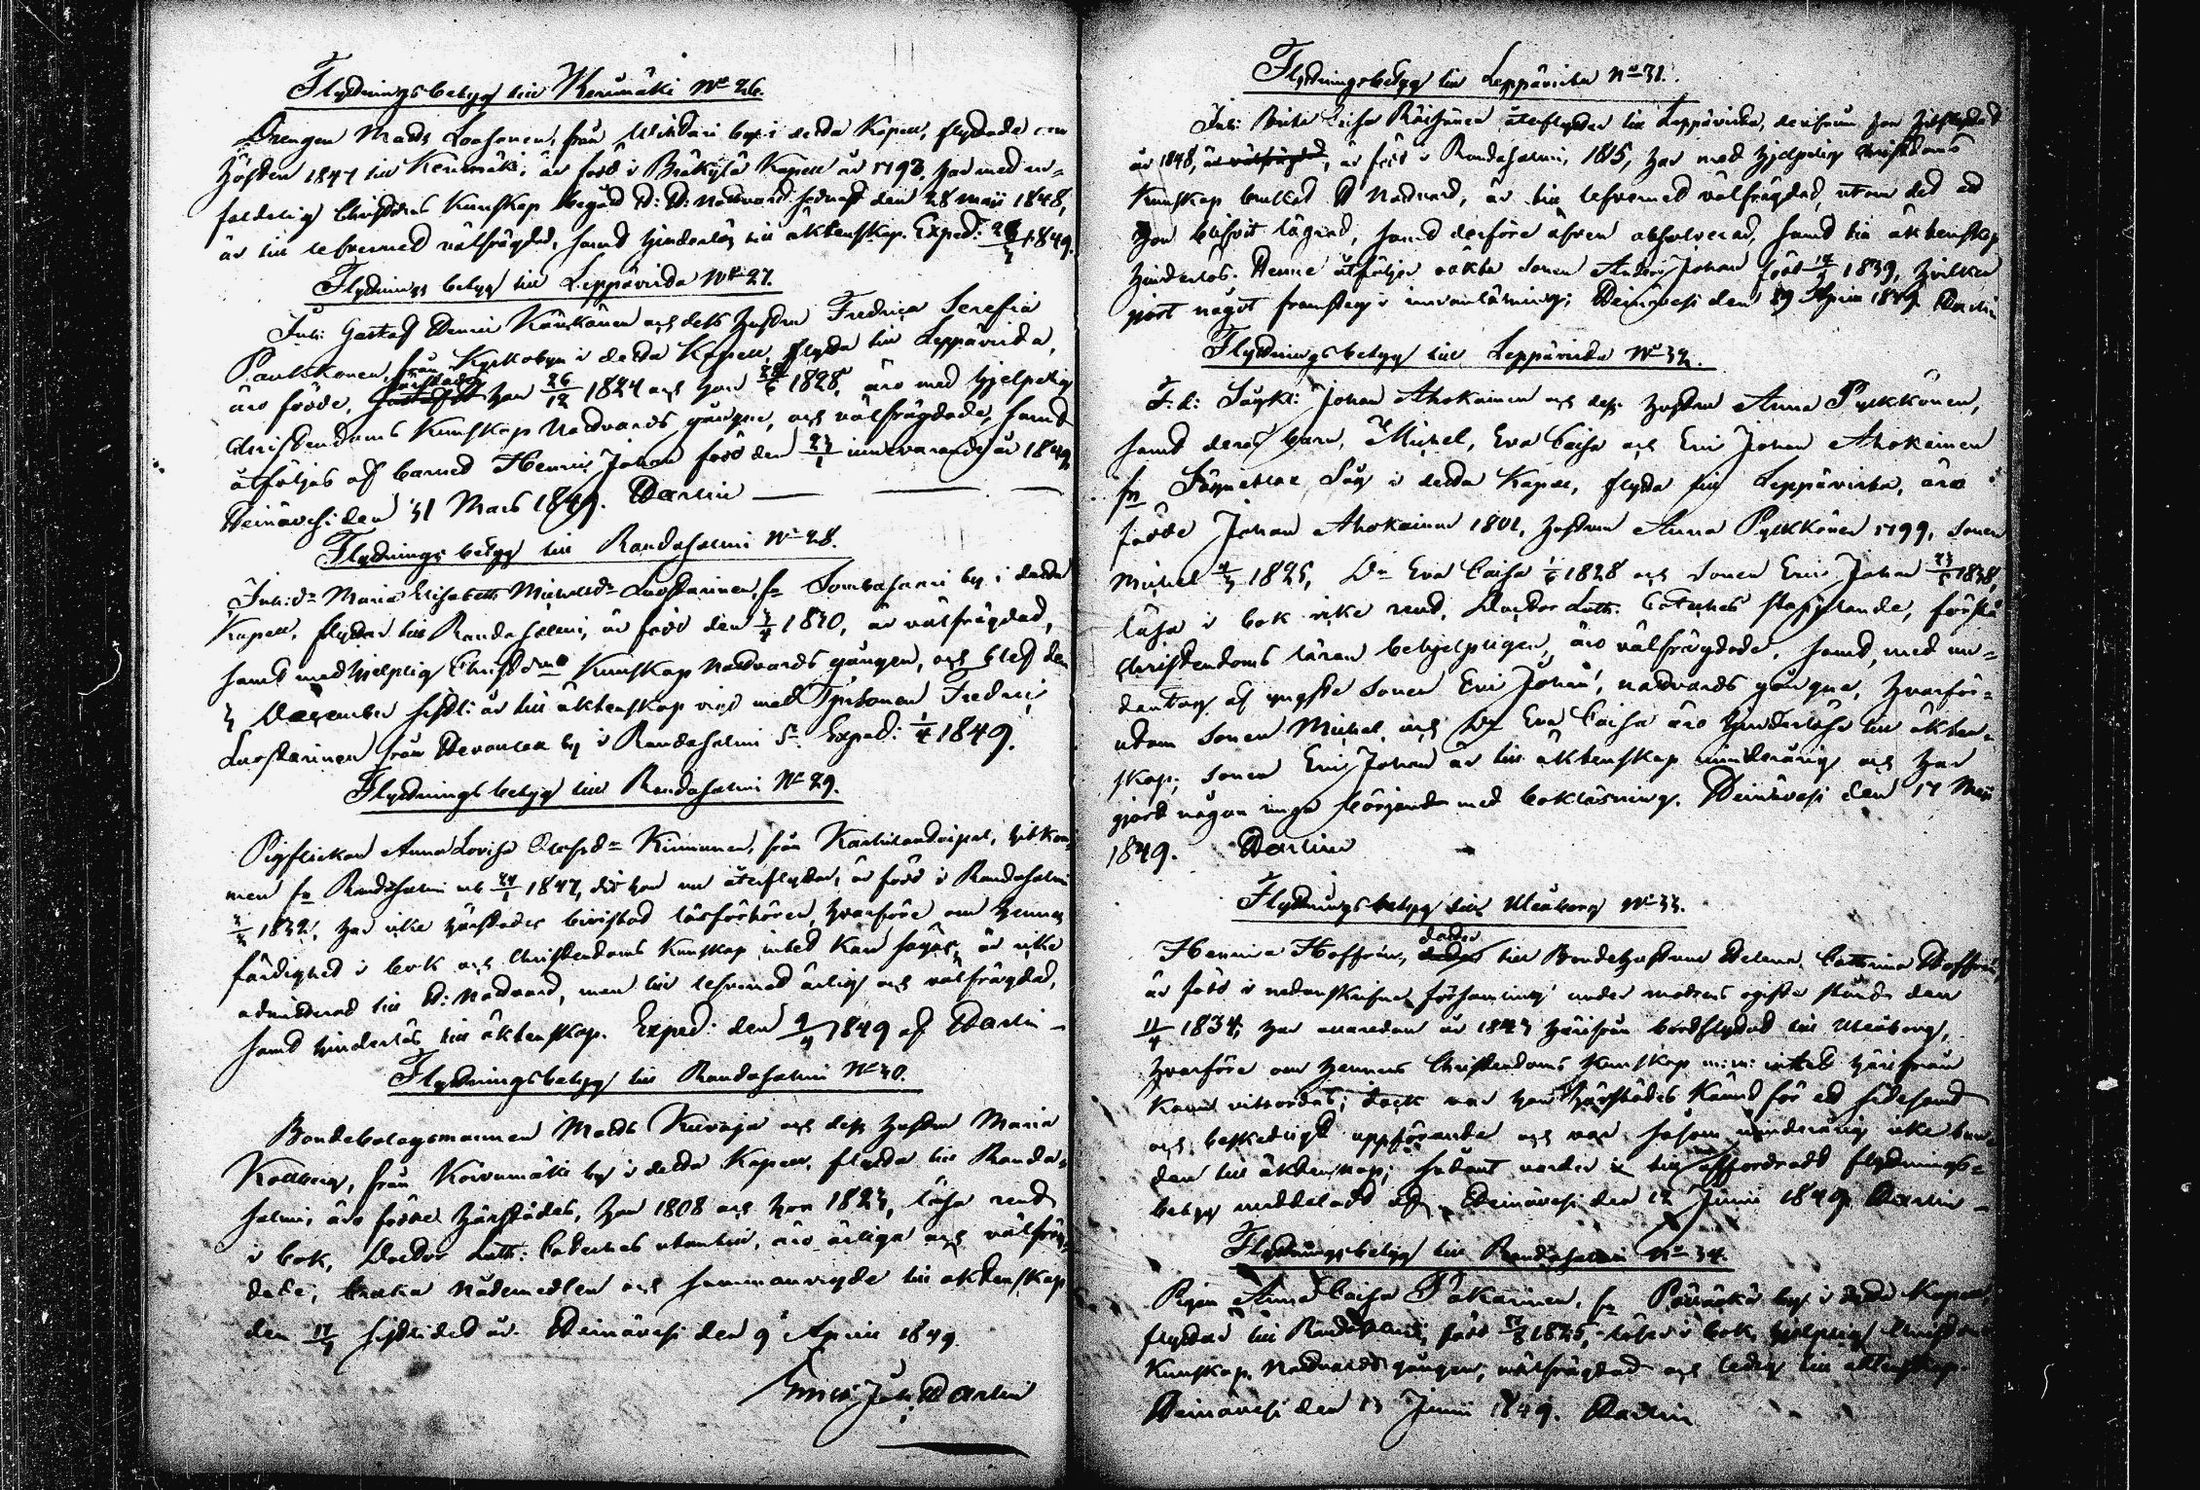 Flyttningsbetyg till Kerimäki No 26.
Drengen Mats Loohonen, från by i detta Kapell, flyttade om
hösten 1847 till Kerimäki, är född i Bräkylä Kapell år 1793, har med en-
faldelig Christdoms Kunskap begått H: H: Nattvard sednast den 28 Maii 1848,
är till lefverned välfrägdad, samt hinderlös till äktenskap. Exped: 1849.
Flyttnings betyg till Leppävirta No 27.
Inh: Gustaf Henric Känkänen och dess hustru Fredrica Serefia
Pankkonen, från Kyrkobyn i detta Kapell, flytta till Leppävirta,
äro födde, härstädes han 26/12 1824 och hon 1828, äro med hjelpelig
Christendoms Kunskap Nattvards gångne, och välfrägdade, samt
åtföljas af barnet Henric Johan född den 23/1 innevarande år 1849.
Heinävesi den 31 Mars 1849. Dartin
Flyttnings betyg till Randasalmi No 28.
Inh: dr Maria Elisabeth Michelsdr Luostarinen, fr by i detta
Kapell, flyttar till Randasalmi, är född den 3/4 1820, är välfrägdad,
samt med hjelplig Christdms Kunskap Nattvards gången, och blef den
3 December sistl: år till äktenskap vigd med Fredric
Luostarinen från by i Randasalmi Sn. Exped: 1/4 1849.
Flyttningsbetyg till Randasalmi No 29.
Pigflickan Anna Lovisa Olofsdr Kinnunen, från Karttilandoipal, hitkom-
men fr Randasalmi ut 24/1 1847, dit hon nu återflyttar, är född i Randasalmi
1832, har icke härstädes bivistat läsförhören, hvarföre om hennes
färdighet i bok och Christendoms Kunskap intet kan sägas, är icke
admitterad till H: Nattvard, men till lefverned ärlig och välfrägdad,
samt hinderlös till äktenskap. Exped: den 9/4 1849 af Dartin
Flyttningsbetyg till Randasalmi No 30.
Bondebolagsmannen Mats Kuvaja och dess hustru Maria
från Koivumäki by i detta Kapell, flytta till Randa-
salmi, äro födde härstädes, han 1808 och hon 1823, läsa rent
i bok, Doctor Luth: Cateches utantill, äro ärliga och välfräg-
dade, bruka Nådemedlen och sammanvigde till äktenskap
den sistlidet år. Heinävesi den 9 April 1849
Joh: Dartin
Flyttningsbetyg till Leppävirta No 31.
Inh: Brita Caisa Räisänen återflyttar till Leppävirta, derifrån hon hitflyttad
år 1848, är välfrägdad, är född i Randasalmi, 1815, har med hjelplig Christdoms
Kunskap brukat H Nattvard, är till lefverned välfrägdad, utom det att
hon blifvit lägrad, samt derföre äfven absolverad, samt till äktenskap
hinderlös. Henne åtföljer oäkta sonen Anders Johan född 1839, hvilken
gjort något framsteg i innanläsning; Heinävesi den 29 April 1849 Dartin
Flyttningsbetyg till Leppävirta No 32.
F. d: Sågkl: Johan Ahokainen och dess hustru Anna Pylkkönen,
samt deras barn, Michel, Eva Caisa och Eric Johan Ahokainen
fr Såg i detta Kapell, flytta till Leppävirta, äro
födde Johan Ahokainen 1801, hustrun Anna Pylkkönen 1799, sonen
Michel 1825, Dr Eva Caisa 1/6 1828 och sonen Eric Johan 1838,
läsa i bok icke rent, Doctor Luth: Cateches stapplande, förstå
Christendoms läran behjelpligen, äro välfrägdade, samt, med un-
dantag af yngste sonen Eric Johan, nattvards gångne, hvarför-
utom sonen Michel och Dr Eva Caisa äro hinderlösa till äkten-
skap; sonen Eric Johan är till äktenskap minderårig och har
gjort någon ringa början med bokläsning. Heinävesi den 17 Maii
1849. Dartin
Flyttningsbetyg till Uleåborg No 33.
Henrica Hoffrén, dotter till Bondehustrun Helena Cathrina Hoffrén,
är född i nedanskrifne församling under modrens ogifte stånd den
11/4 1834; har allaredan år 1843 härifrån bortflyttat till Uleåborg,
hvarföre om hennes Christendoms Kunskap m: m: intet härifrån
kan vitsordas; dock var hon härstädes känd för ett sedesamt
och beskedligt uppförande och var såsom minderårig icke bun-
den till äktenskap; sådant varder till affordradt flyttnings-
betyg meddeladt af Heinävesi den 12 Junii 1849 Dartin
Flyttningsbetyg till Randasalmi No 34.
Pigan Anna Caisa Pakarinen, fr by i detta Kapell,
flyttar till Randasalmi, född 1825, läser i bok, hjelplig Christdoms
Kunskap, Nattvards gången, välfrägdad och ledig till äktenskap.
Heinävesi den 13 Junii 1849. Dartin